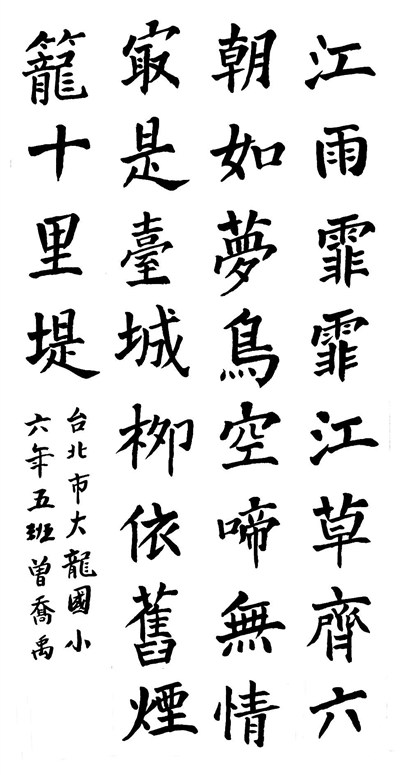 江雨霏霏江草齊六
朝如夢鳥空啼無情
冣是臺城柳依舊煙
籠十里堤
台北市大龍國小
六年五班曾喬禹